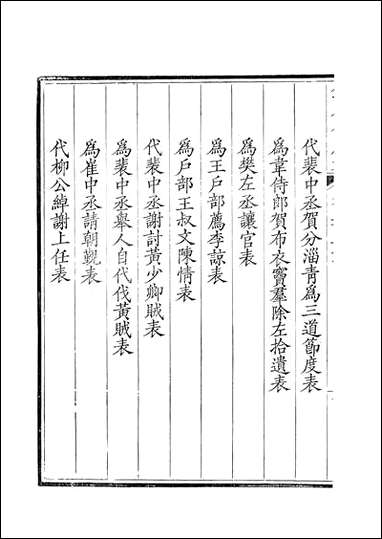 代裴中丞賀分淄青為三道節度表
為韋侍郎賀布衣竇羣除左拾遺表
為樊左丞讓官表
為王户部薦李諒表
為户部王叔文陳情表
代裴中丞謝討黃少卿賊表
為裴中丞舉人自代伐黃賊表
為崔中丞請朝覲表
代柳公綽謝上任表